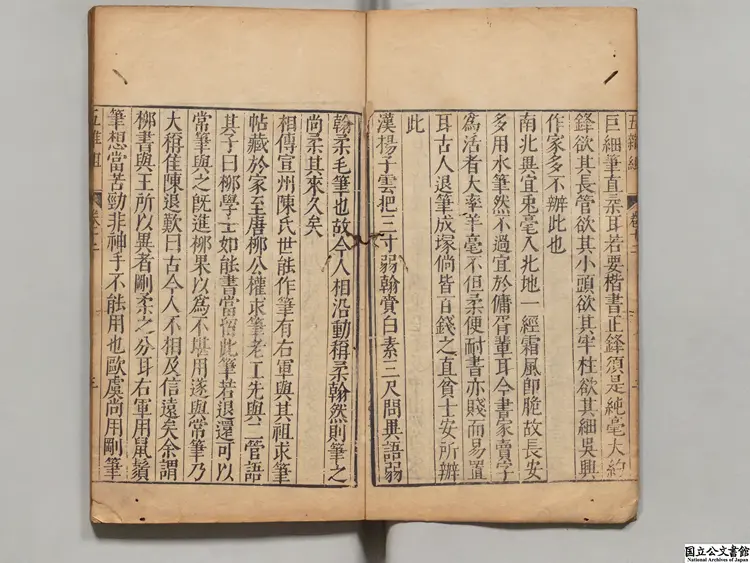 五雜組 卷十二
巨細筆直柔耳若要楷書正鋒須是純毫大約
鋒欲其長管欲其小頭欲其牢柱欲其細吳興
作家多不辨此也
南北異宜兎毫入北地一經霜風卽脆故長安
多用水筆然不過宜於傭胥輩耳今書家賣字
爲活者大率羊毫不但柔便耐書亦賤而易置
耳古人退筆成塚倘皆百錢之直貧士安所辦
此
漢揚子雲把三寸弱翰賫白素三尺問異語弱
翰柔毛筆也故今人相沿動稱柔翰然則筆之
尚柔其來久矣
相傳宣州陳氏世能作筆有右軍與其祖求筆
帖藏於家至唐柳公權求筆老工先與二管語
其子曰柳學士如能書當留此筆若退還可以
常筆與之旣進柳果以爲不堪用遂與常筆乃
大稱佳陳退歎曰古今人不相及信遠矣余謂
柳書與王所以異者剛柔之分耳右軍用鼠鬚
筆想當苦勁非神手不能用也歐虞尚用剛筆
五雜組 卷十二
国立公文書館
National Archives of Japan